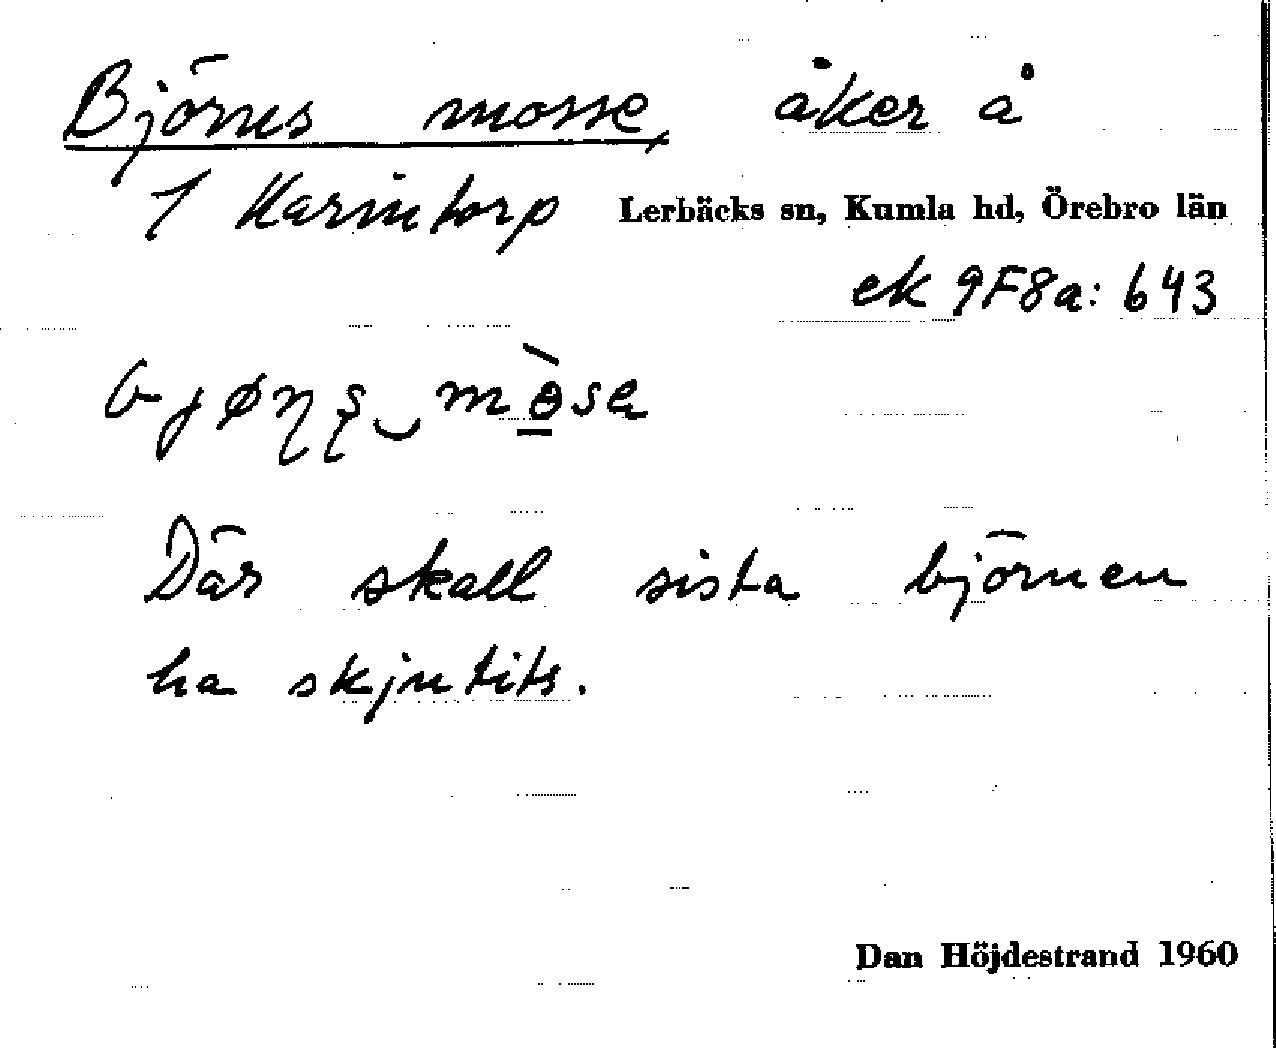 Björns mosse, åker å
1 Karintorp Lerbäcks sn, Kumla hd, Örebro län
ek 9F8a: 643
bjøɳʂ‿mɵ̠̀sa
Där skall sista björnen
ha skjutits.
Dan Höjdestrand 1960